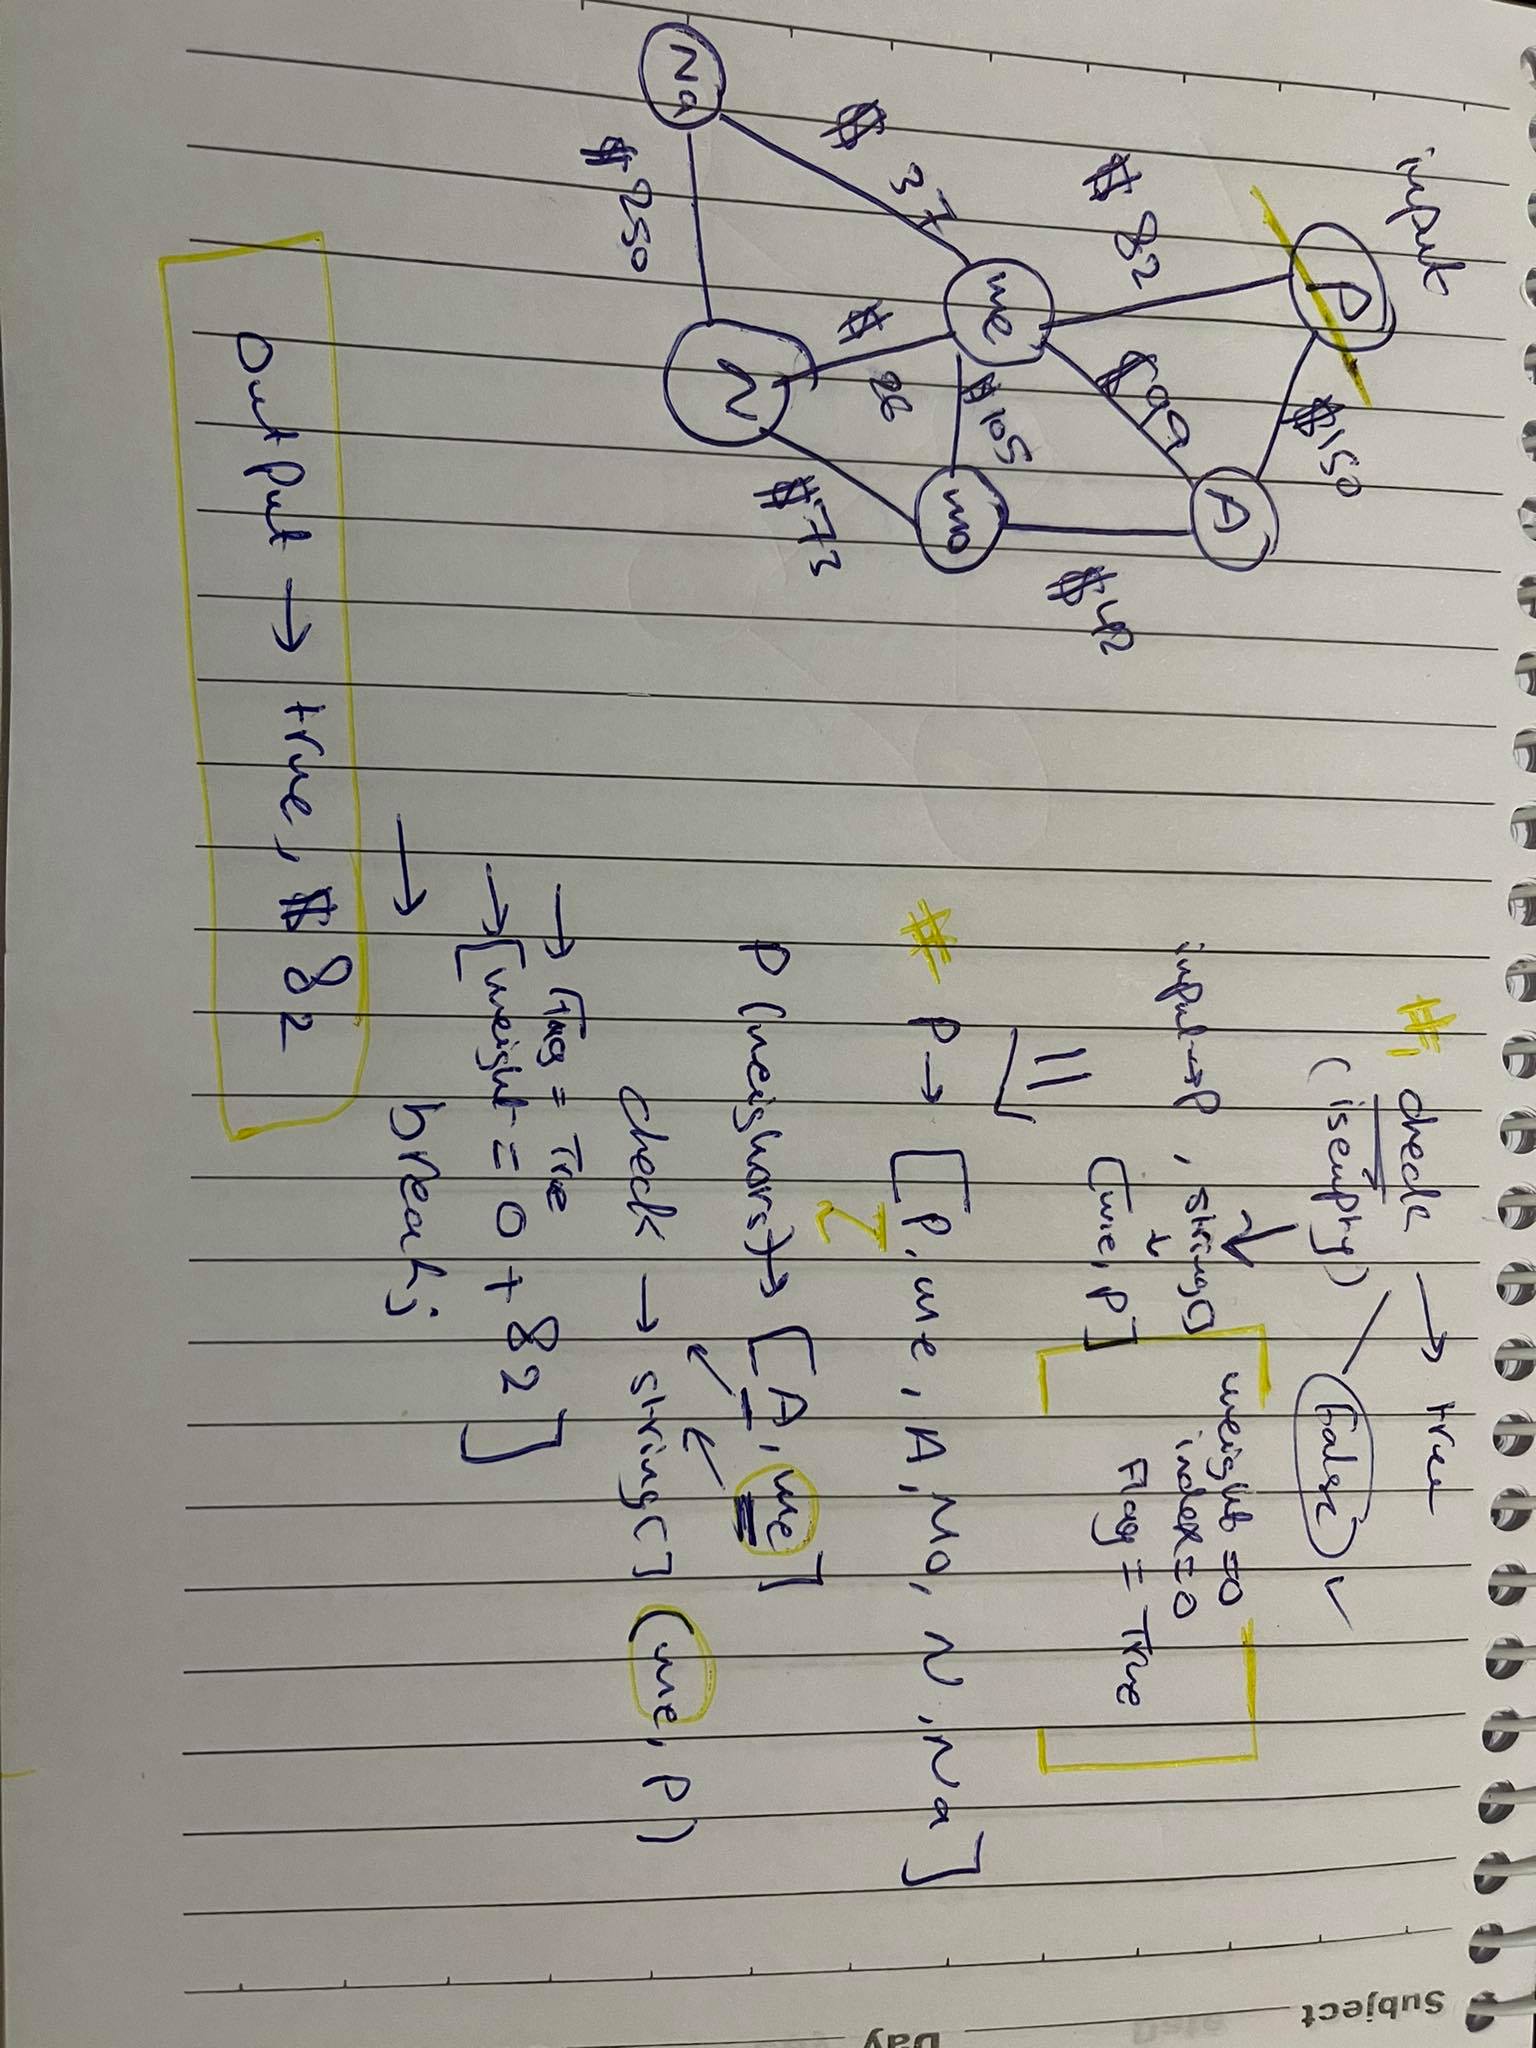 input
P
$150
A
$82
$99
$42
me
$105
mo
$37
$26
$73
N
Na
$250
#1 check → true
(isempty) False ✓
input → P , string[]
[me, P]
weight = 0
index = 0
Flag = True
# P → [P, me, A, Mo, N, Na]
P (neighors) → [A, me]
check → string[] (me, P)
→ Flag = Tre
→ [weight = 0 + 82]
→ break;
output → true, $82
Subject
Day